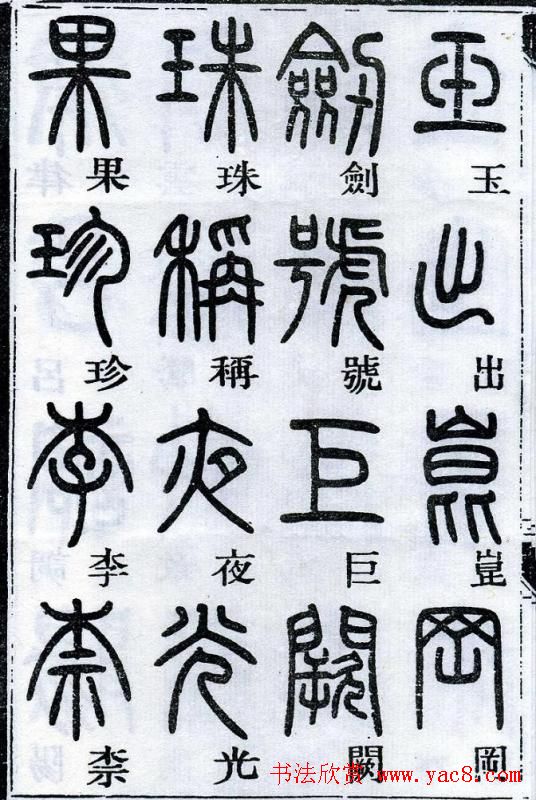 玉出崑岡
劍號巨闕
珠稱夜光
果珍李柰
书法欣赏 www.yac8.com